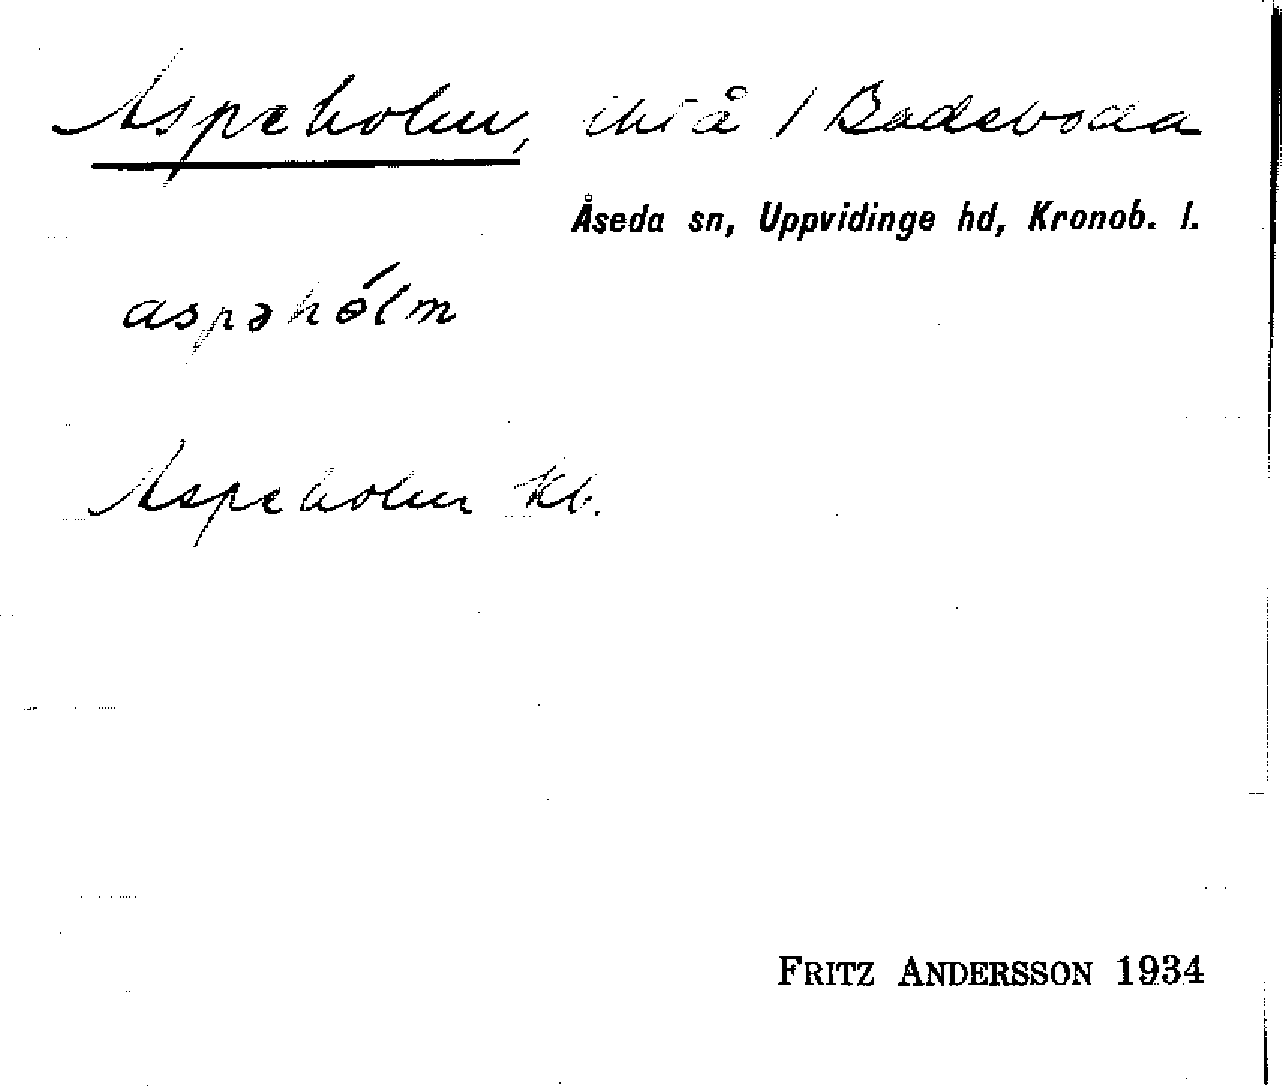 Aspeholm, åker / Badeboda
Åseda sn, Uppvidinge hd, Kronob. l.
aspəhólm
Aspeholm kb.
FRITZ ANDERSSON 1934